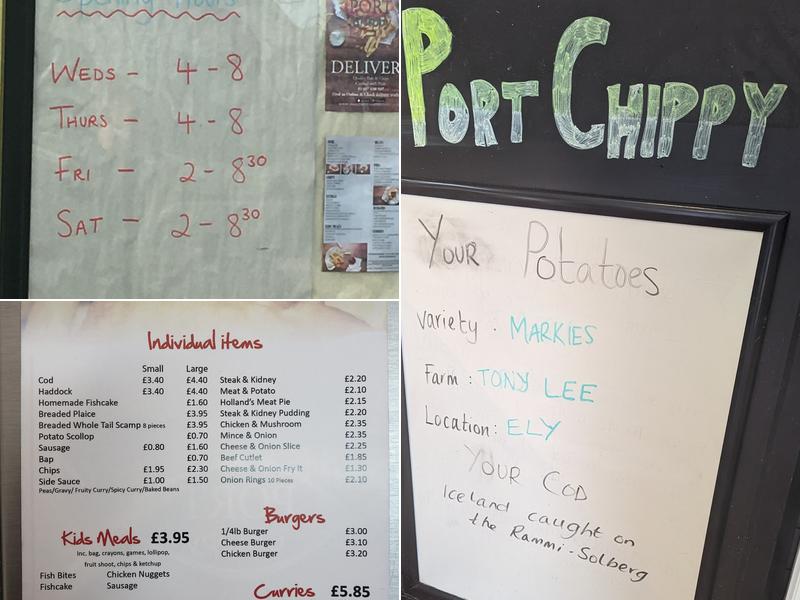 Opening Hours
WEDS - 4 - 8
THURS - 4 - 8
FRI - 2 - 8³⁰
SAT - 2 - 8³⁰
PORT
DELIVER
PORT CHIPPY
Your Potatoes
variety . MARKIES
Farm : TONY LEE
Location: ELY
YOUR COD
Iceland caught on
the Rammi-Solberg
Individual items
Small Large
Cod £3.40 £4.40
Haddock £3.40 £4.40
Homemade Fishcake £1.60
Breaded Plaice £3.95
Breaded Whole Tail Scamp 8 pieces £3.95
Potato Scollop £0.70
Sausage £0.80 £1.60
Bap £0.70
Chips £1.95 £2.30
Side Sauce £1.00 £1.50
Peas/Gravy/ Fruity Curry/Spicy Curry/Baked Beans
Steak & Kidney £2.20
Meat & Potato £2.10
Holland's Meat Pie £2.15
Steak & Kidney Pudding £2.20
Chicken & Mushroom £2.35
Mince & Onion £2.35
Cheese & Onion Slice £2.25
Beef Cutlet £1.85
Cheese & Onion Fry It £1.30
Onion Rings 10 Pieces £2.10
Kids Meals £3.95
Inc. bag, crayons, games, lollipop,
fruit shoot, chips & ketchup
Fish Bites Chicken Nuggets
Fishcake Sausage
Burgers
1/4lb Burger £3.00
Cheese Burger £3.10
Chicken Burger £3.20
Curries £5.85